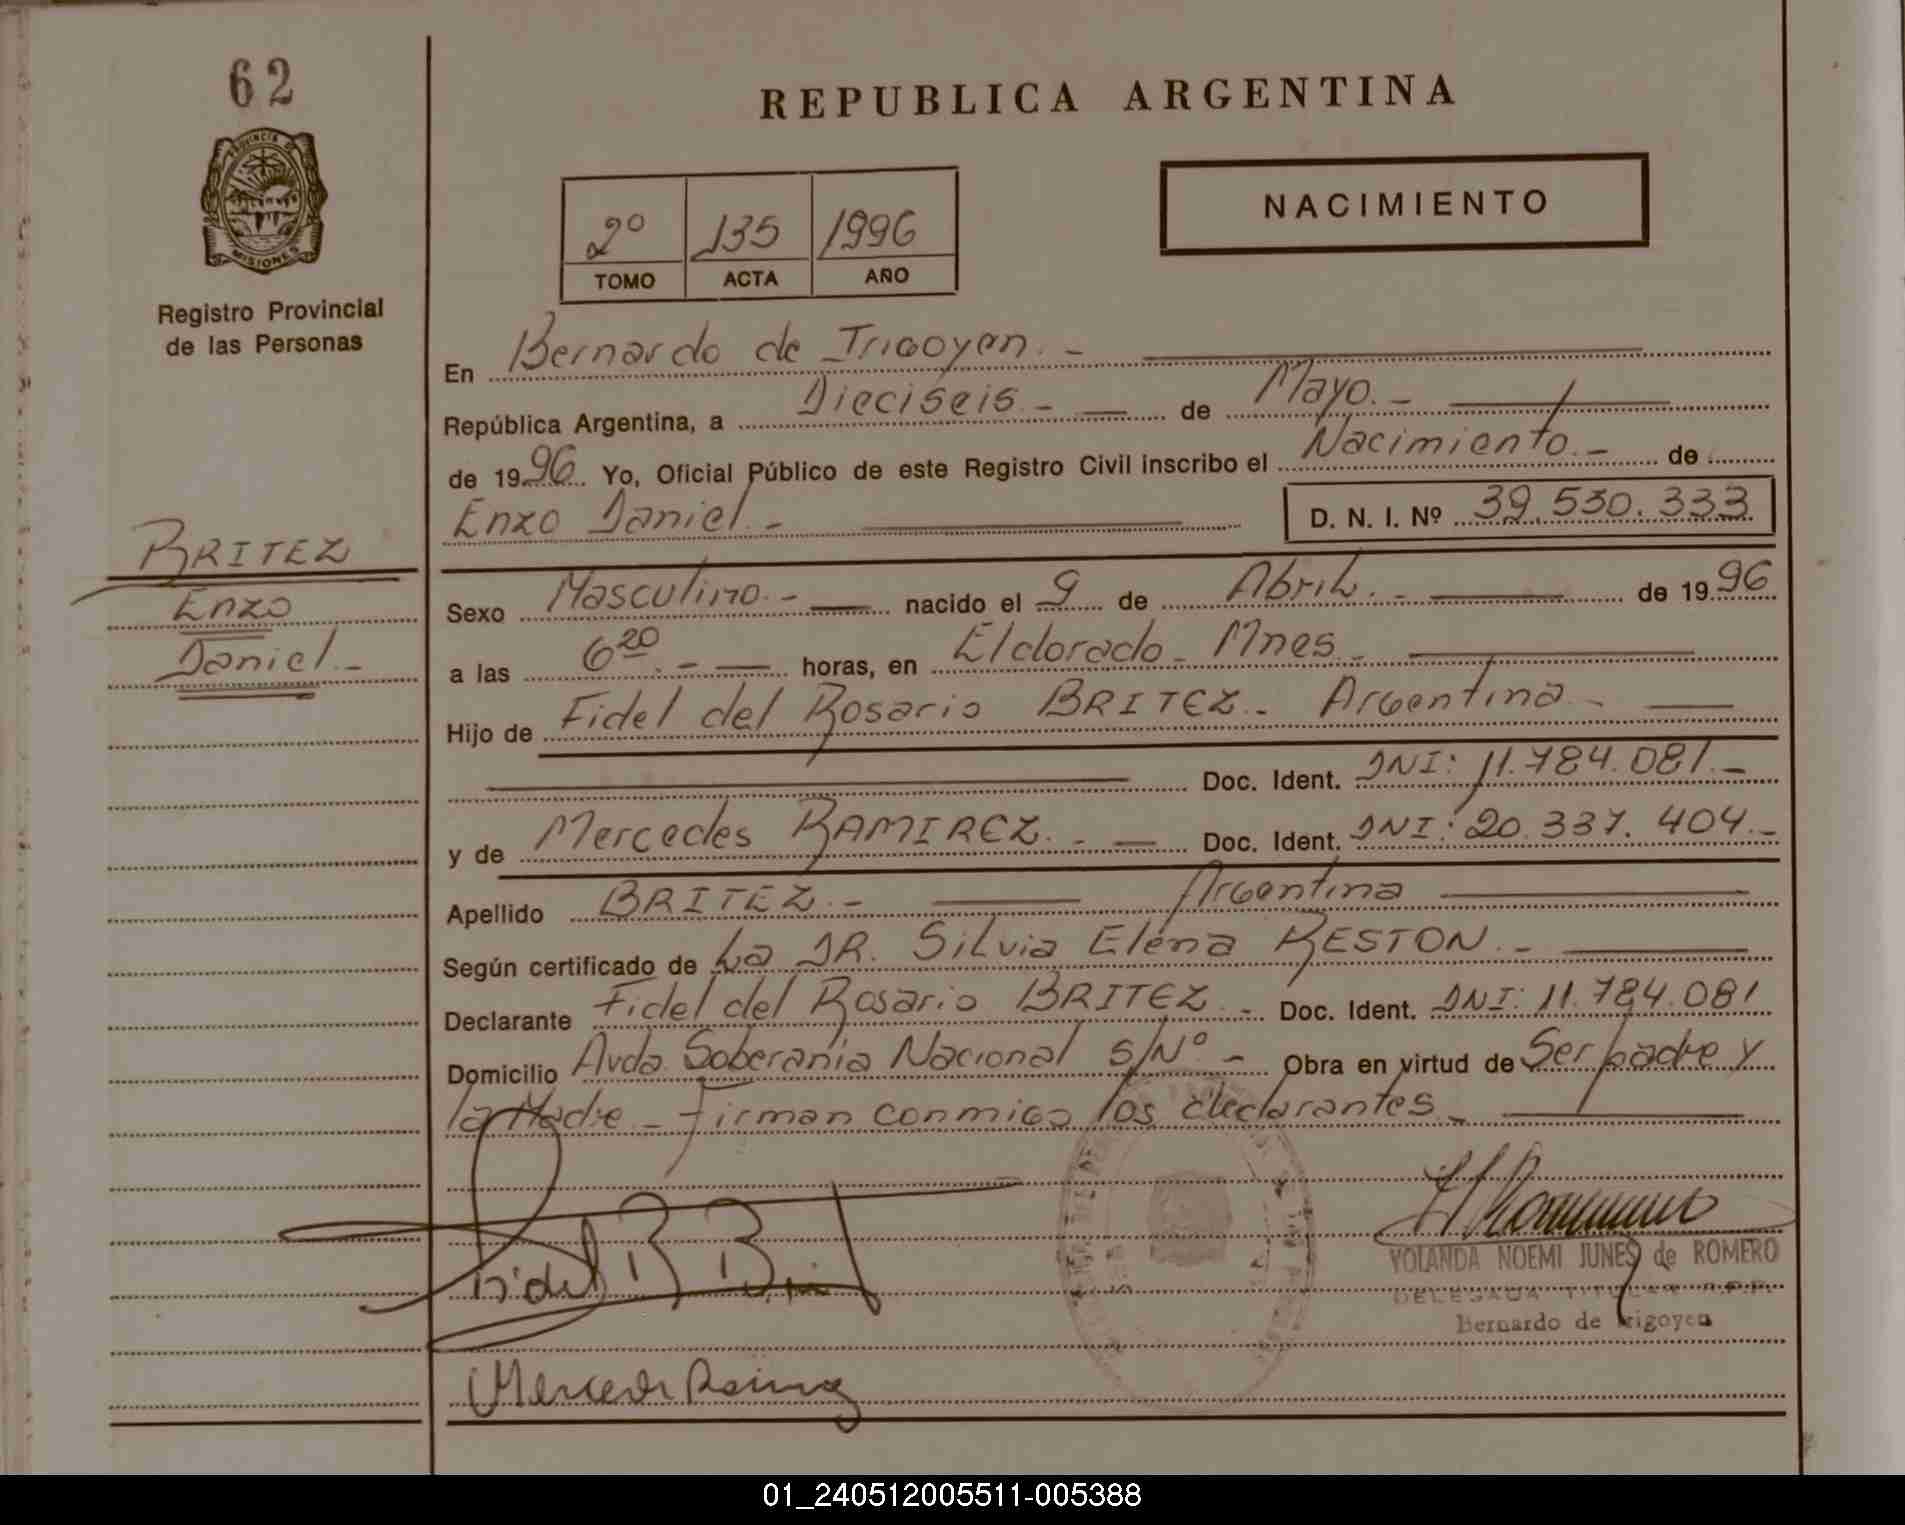 62
PROVINCIA DE
MISIONES
Registro Provincial
de las Personas
BRITEZ
Enzo
Daniel.-
REPUBLICA ARGENTINA
NACIMIENTO
2º 135 1996
TOMO ACTA AÑO
En Bernardo de Irigoyen.-
República Argentina, a Dieciseis.- de Mayo.-
de 1996. Yo, Oficial Público de este Registro Civil inscribo el Nacimiento.- de
Enzo Daniel.- D. N. I. Nº 39.530.333
Sexo Masculino.- nacido el 9 de Abril.- de 1996
a las 6 20.- horas, en Eldorado - Mnes.-
Hijo de Fidel del Rosario BRITEZ.- Argentina.-
Doc. Ident. DNI: 11.784.081.-
y de Mercedes RAMIREZ.- Doc. Ident. DNI: 20.337.404.-
Apellido BRITEZ.- Argentina
Según certificado de La DR. Silvia Elena RESTON.-
Declarante Fidel del Rosario BRITEZ.- Doc. Ident. DNI: 11.784.081
Domicilio Avda. Soberanía Nacional s/Nº.- Obra en virtud de Ser padre y
la Madre - Firman conmigo los declarantes.-
Fidel R B
YOLANDA NOEMI JUNES de ROMERO
DELEGADA TITULAR R.P.P.
Bernardo de Irigoyen
01_240512005511-005388